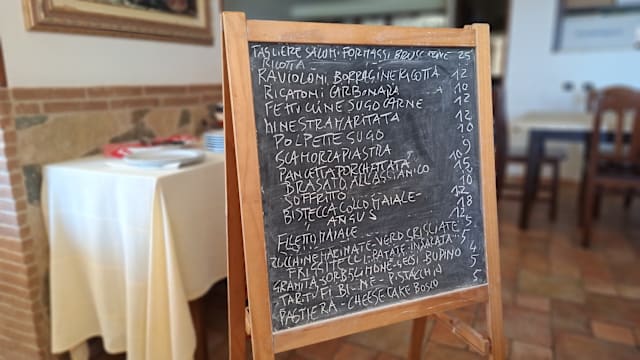 TAGLIERE SALUMI FORMAGGI BRUSCHETTE 25
RICOTTA
RAVIOLONI BORRAGINE RICOTTA 12
RIGATONI CARBONARA 10
FETTUCCINE SUGO CARNE 12
MINESTRA MARITATA 12
POLPETTE SUGO 10
SCAMORZA PIASTRA 9
PANCETTA PORCHETTATA 10
BRASATO ALL'AGLIANICO 15
SOFFRITTO 10
BISTECCA COLLO MAIALE - 12
ANGUS 18
FILETTO MAIALE 12
ZUCCHINE MACINATE - VERD GRIGLIATE 5
FRIGGITELLI - PATATE - INSALATA 5
GRANITA - SORB. LIMONE - GELSI - BUDINO 4
TARTUFI BIANCO - PISTACCHIO 5
PASTIERA - CHEESECAKE BOSCO 5